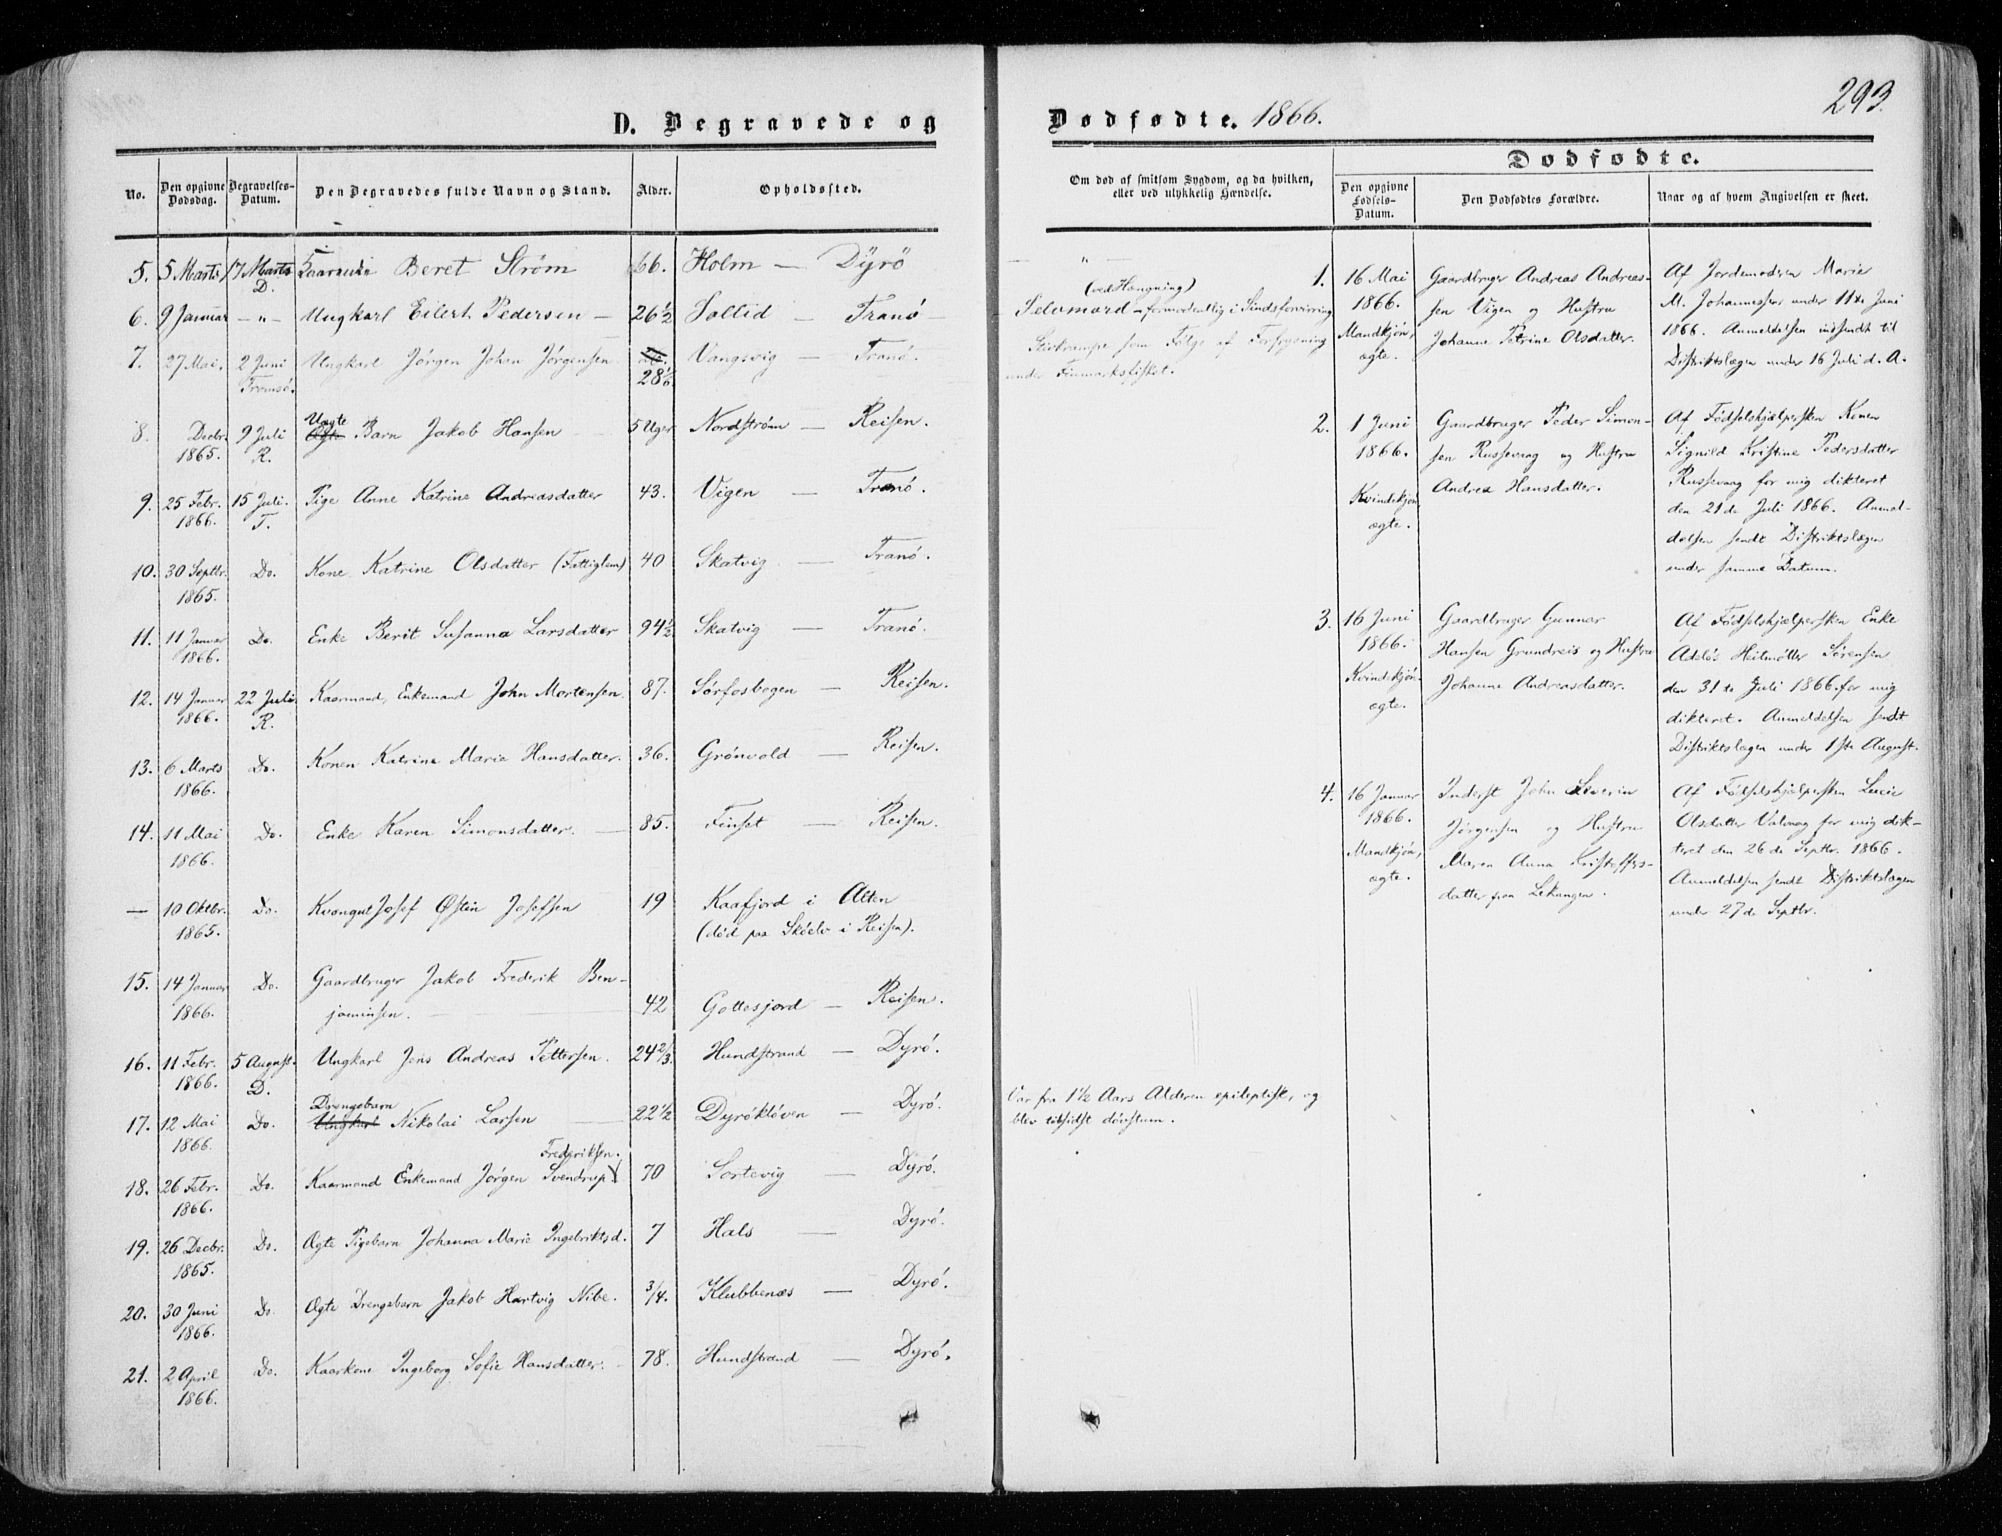 293.
D. Begravede og
Dødfødte. 1866.
No.
Den opgivne Dødsdag.
Begravelses-Datum.
Den Begravedes fulde Navn og Stand.
Alder.
Opholdssted.
Om død af smitsom Sygdom, og da hvilken, eller ved ulykkelig Hændelse.
Dødfødte.
Den opgivne Fødsels-Datum.
Den Dødfødtes Forældre.
Naar og af hvem Angivelsen er skeet.
5. 5 Marts 17 Marts D. Beret Strøm 66. Holm — Dyrö
6. 9 Januar — " — Ungkarl Eilert Pedersen — 26½ Sollid — Tranö
(ved Hængning)
Selvmord — formodentlig i Sindsforvirring
7. 27 Mai, 2 Juni Tromsø. Ungkarl Jörgen Johan Jörgensen 28 Vangsvig — Tranö.
Stivkrampe som Følge af Forfrysning
under Finmarksfisket.
8. Decbr. 1865. 9 Juli R. Uægte Barn Jakob Hansen 5 Uger Nordstrøm — Reisen.
9. 25 Febr. 1866. 15 Juli. T. Pige Anne Katrine Andreasdatter 43. Vigen — Tranö.
10. 30 Septbr. 1865. Do. Kone Katrine Olsdatter (Fattiglem) 40 Skatvig — Tranö.
11. 11 Januar 1866. Do. Enke Berit Susanna Larsdatter 94½ Skatvig — Tranö.
12. 14 Januar 1866. 22 Juli R. Kaarmand, Enkemand John Mortensen. 87. Sørfosbogen — Reisen.
13. 6 Marts 1866. Do. Konen Katrine Maria Hansdatter. 36. Grönvold — Reisen.
14. 11 Mai 1866. Do. Enke Karen Simonsdatter. 85. Finset — Reisen.
— 10 Oktbr. 1865. Do. Kvængut Josef Østin Josefsen 19 Kaafjord i Alten
(død paa Sköelv i Reisen).
15. 14 Januar 1866. Do. Gaardbruger Jakob Frederik Ben-
jaminsen. 42 Gottesjord — Reisen.
16. 11 Febr. 1866. 5 August. D. Ungkarl Jens Andreas Pettersen. 24 2/3. Hundstrand — Dyrö.
17. 12 Mai 1866. Do. Drengebarn Ungkarl Nikolai Larsen 22½ Dyröklöven — Dyrö.
Var fra 1½ Aars Alderen epileptisk, og
blev tilsidst døvstum.
18. 26 Febr. 1866. Do. Kaarmand Enkemand Jörgen Svendrup Frederiksen. 70 Sortevig — Dyrö.
19. 26 Decbr. 1865. Do. Ægte Pigebarn Johanna Marie Ingebriktsd. 7 Hals — Dyrö.
20. 30 Juni 1866. Do. Ægte Drengebarn Jakob Hartvig Nibe. 3/4. Klubbenæs — Dyrö.
21. 2 April 1866. Do. Kaarkone Ingeborg Sofie Hansdatter. 78. Hundstrand — Dyrö.
1. 16 Mai 1866. Mandkjön, ægte.
Gaardbruger Andreas Andreas-
sen Vigen og Hustru
Johanne Petrine Olsdatter.
Af Jordemoderen Marie
M. Johannessen under 11te Juni
1866. Anmeldelsen indsendt til
Distriktslægen under 16 Juli d. A.
2. 1 Juni 1866. Kvindekjön ægte.
Gaardbruger Peder Simon-
sen Russevaag og Hustru
Andrea Hansdatter.
Af Fødselshjælpersken Konen
Signild Kristine Pedersdatter
Russevaag for mig dikteret
den 21de Juli 1866. Anmel-
delsen sendt Distriktslægen
under samme Datum.
3. 16 Juni 1866. Kvindekjön. ægte.
Gaardbruger Gunnar
Hansen Grundreis og Hustru
Johanne Andreasdatter.
Af Fødselshjælpersken Enke
Sörensen
den 31te Juli 1866. for mig
dikteret. Anmeldelsen sendt
Distriktslægen under 1ste August.
4. 16 Januar 1866. Mandkjön, ægte.
Inderst John Severin
Jørgensen og Hustru
Maren Anna Kristoffers-
datter paa Lekangen.
Af Fødselshjælpersken Lucie
Olsdatter for mig dik-
teret den 26de Septbr. 1866.
Anmeldelsen sendt Distriktslægen
under 27de Septbr.